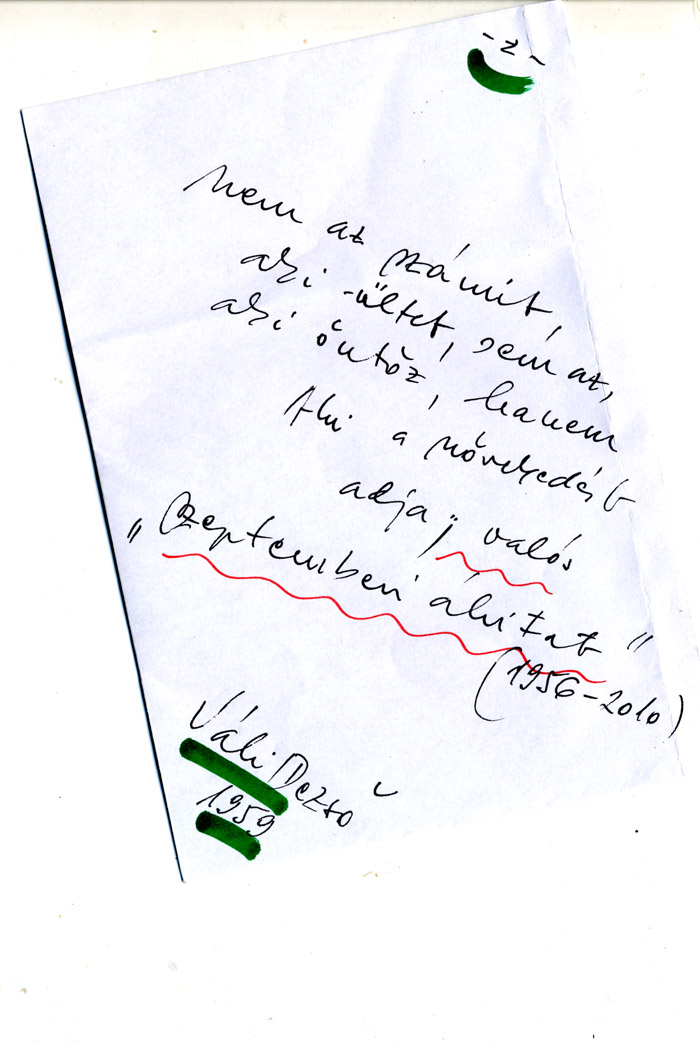 -2-
Nem az számít,
aki ültet, sem az,
aki öntöz, hanem
Aki a növekedést
adja, valós
"Szeptemberi áhítat"
(1956-2010)
Váli Dezső
1959